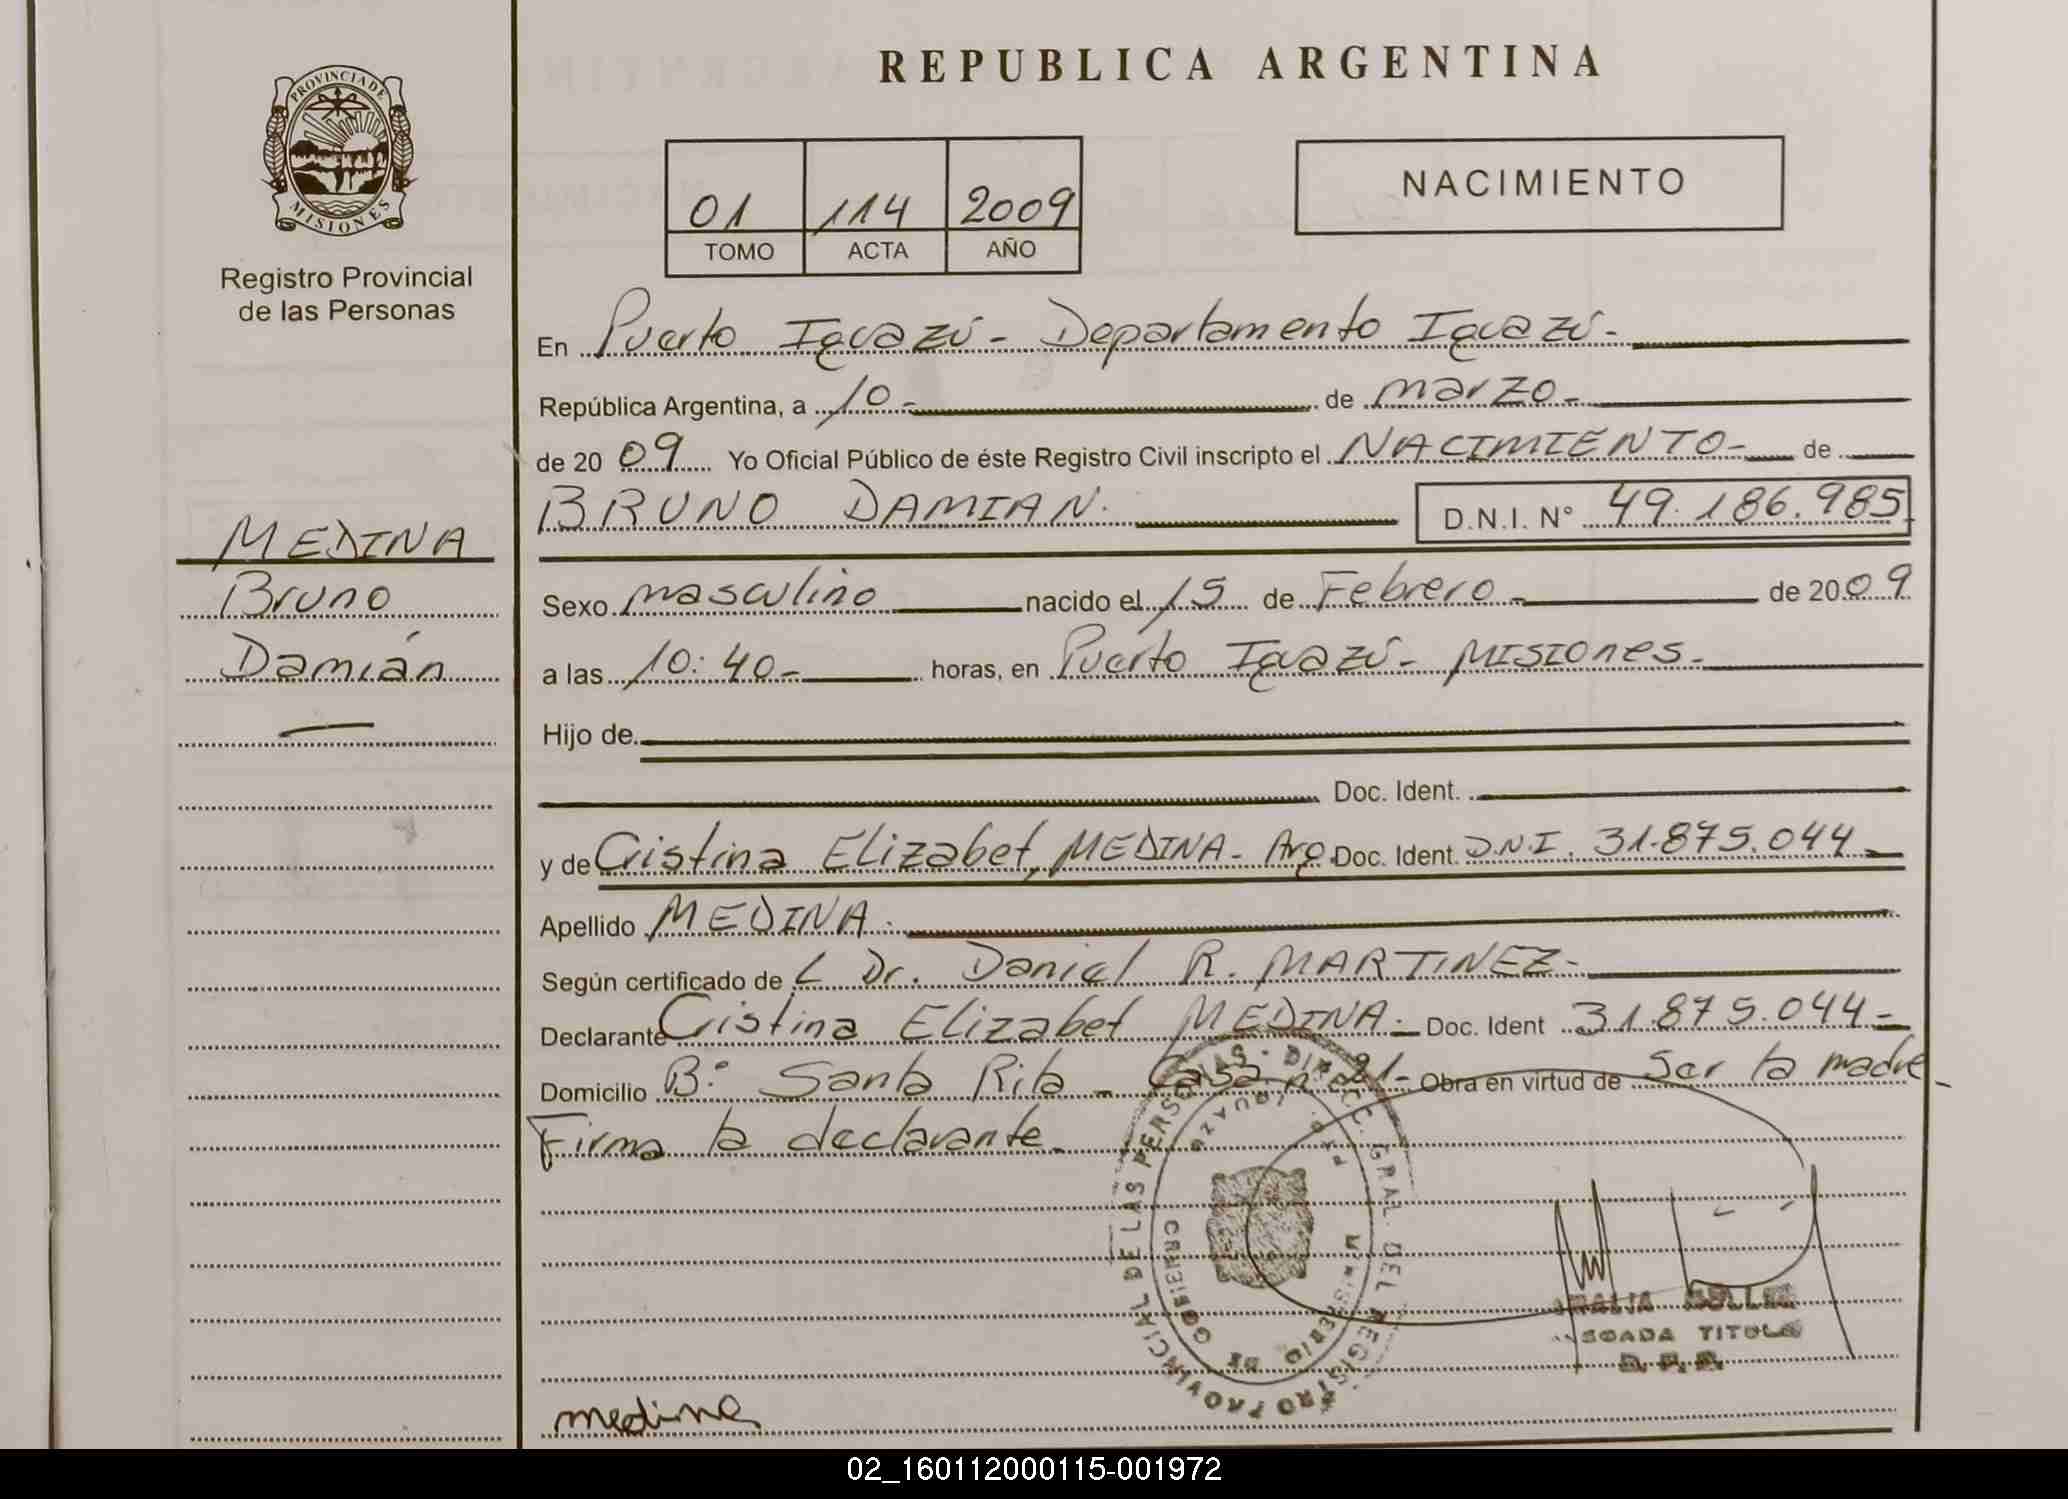 REPUBLICA ARGENTINA
PROVINCIA DE MISIONES
Registro Provincial
de las Personas
01 114 2009
TOMO ACTA AÑO
NACIMIENTO
En Puerto Iguazú - Departamento Iguazú -
República Argentina, a 10 - de marzo -
de 20 09 Yo Oficial Público de éste Registro Civil inscripto el NACIMIENTO - de
BRUNO DAMIAN. D.N.I. N° 49.186.985
MEDINA
Bruno
Damián
Sexo masculino nacido el 15 de Febrero - de 20 09
a las 10:40 - horas, en Puerto Iguazú - MISIONES -
Hijo de
Doc. Ident.
y de Cristina Elizabet MEDINA - Arg. Doc. Ident. D.N.I. 31.875.044 -
Apellido MEDINA.
Según certificado de L Dr. Daniel R. MARTINEZ -
Declarante Cristina Elizabet MEDINA - Doc. Ident 31.875.044 -
Domicilio B° Santa Rita - Casa n° 21 - Obra en virtud de Ser la madre -
Firma la declarante -
DIRECC. GRAL. DEL REGISTRO PROVINCIAL DE LAS PERSONAS
MINISTERIO DE GOBIERNO
PTO. IGUAZU
TITULAR
medina
02_160112000115-001972